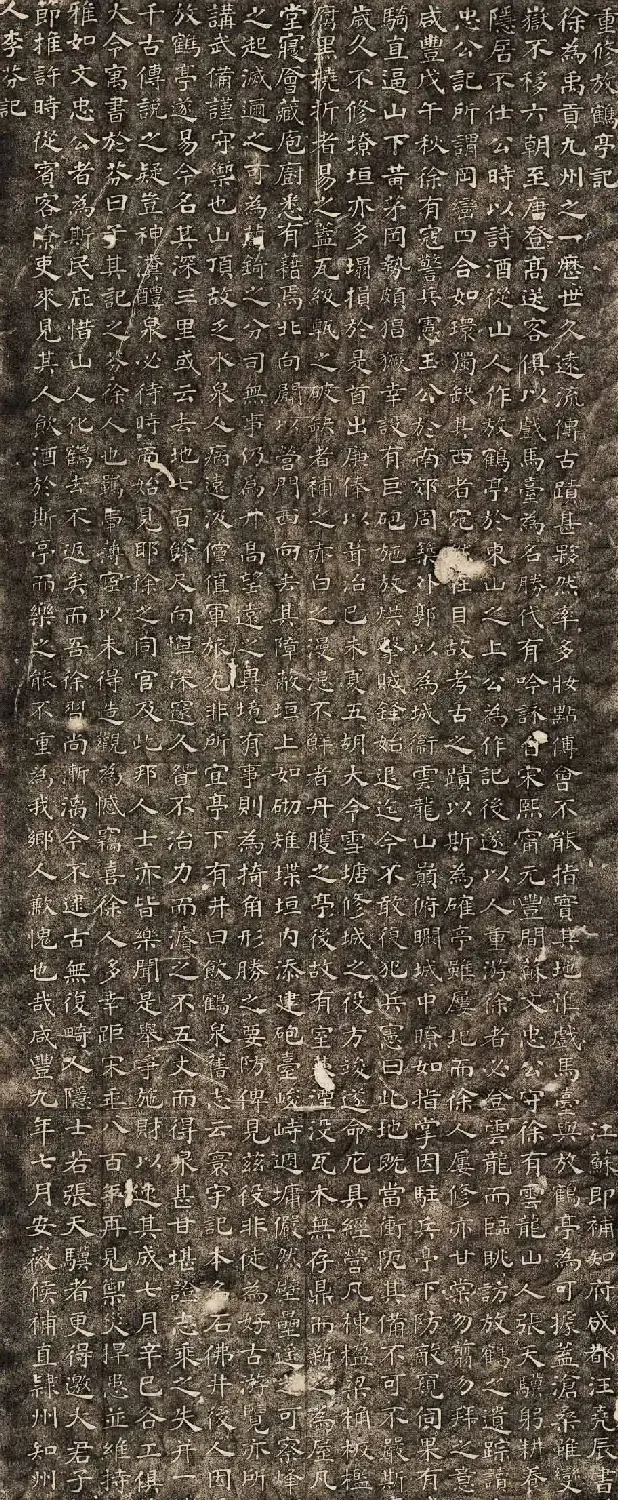 重修放鶴亭記　江蘇即補知府成都汪堯辰書
徐為禹貢九州之一歷世久遠流傳古蹟甚夥然率多妝點傅會不能指實其地惟戲馬臺與放鶴亭為可據蓋滄桑雖變
嶽不移六朝至唐登高送客俱以戲馬臺為名勝代有吟詠自宋熙甯元豐間蘇文忠公守徐有雲龍山人張天驥躬耕養
隱居不仕公時以詩酒從山人作放鶴亭於東山之上公為作記後遂以人重游徐者必登雲龍而臨眺訪放鶴之遺踪讀
忠公記所謂岡嶺四合如環獨缺其西者宛然在目故考古之蹟以斯為確亭雖屢圮而徐人屢修亦甘棠勿翦勿拜之意
咸豐戊午秋徐有寇警兵憲王公於南郊周築外郭以為城衞雲龍山巔俯瞷城中瞭如指掌因駐兵亭下防敵窺伺果有
騎直逼山下黃茅岡勢頗猖獗幸設有巨砲施放烘擊賊銓始退迄今不敢復犯兵憲曰此地既當衝阨其備不可不嚴斯
歲久不修墩垣亦多塌損於是首出廉俸以葺治已未夏五胡大令雪塘修城之役方竣遂命庀具經營凡棟楹梁桷板檻
腐黑撓折者易之蓋瓦級甎之破缺者補之赤白之漫漶不鮮者丹雘之亭後故有室基湮没瓦木無存鼎而新之為屋凡
堂寢會藏庖廚悉有藉焉北向闢以營門西向去其障蔽垣上如砌雉堞垣内添建砲臺峻峙週墉儼然壁壘遠之可察烽
之起滅邇之可為鎖錡之分司無事仍為升高望遠之興境有事則為掎角形勝之要防俾見茲役非徒為好古游覽亦所
講武備謹守禦也山頂故乏水泉人病遠汲儻值軍旅尤非所宜亭下有井曰飲鶴泉舊志云寰宇記本名石佛井後人因
放鶴亭遂易今名其深三里或云去地七百餘尺向恒深窪人皆不治力而濬之不五丈而得泉甚甘堪證志乘之失幷一
千古傳説之疑豈神瀵醴泉必待時而始見耶徐之同官及此邦人士亦皆樂聞是舉爭施財以速其成七月辛巳各工俱
大令寓書於芬曰子其記之芬徐人也羈南薄宦以未得造觀為憾竊喜徐人多幸距宋垂八百年再見禦災捍患並維持
雅如文忠公者為斯民庇惜山人化鶴去不返矣而吾徐習尚漸漓今不逮古無復畸人隱士若張天驥者更得邀大君子
節推許時從賓客僚吏來見其人飲酒於斯亭而樂之能不重為我鄉人歉愧也哉咸豐九年七月安徽候補直隸州知州
人李芬記